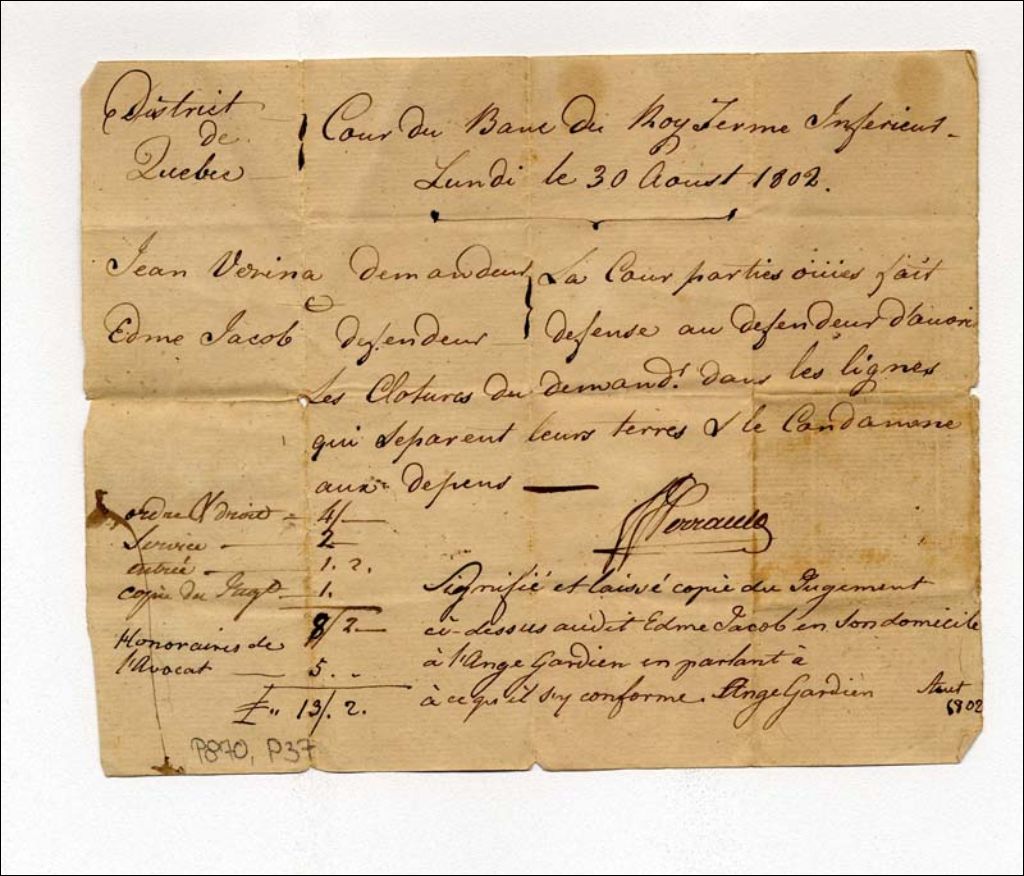 District
de
Quebec
Cour du Banc du Roy Terme Inferieur
Lundi le 30 Aoust 1802.
Jean Verina demandeur
Edme Jacob defendeur
La Cour parties oüies fait
defense au defendeur d'auorir
les Clotures du demandr. dans les lignes
qui separent leurs terres & le Condamne
aux depens
ordre & droit - 4/-
Service - 2-
entrée - 1. 2.
copie du Jugt - 1.
8/2-
Honoraires de
l'Avocat - 5. -
£ ,, 13/. 2.
Perrault
Signifié et laissé copie du Jugement
ci-dessus audit Edme Jacob en son domicile
à l'Ange Gardien en parlant à
à ce qu'il s'y conforme. Ange Gardien Aout
1802
P870, P37